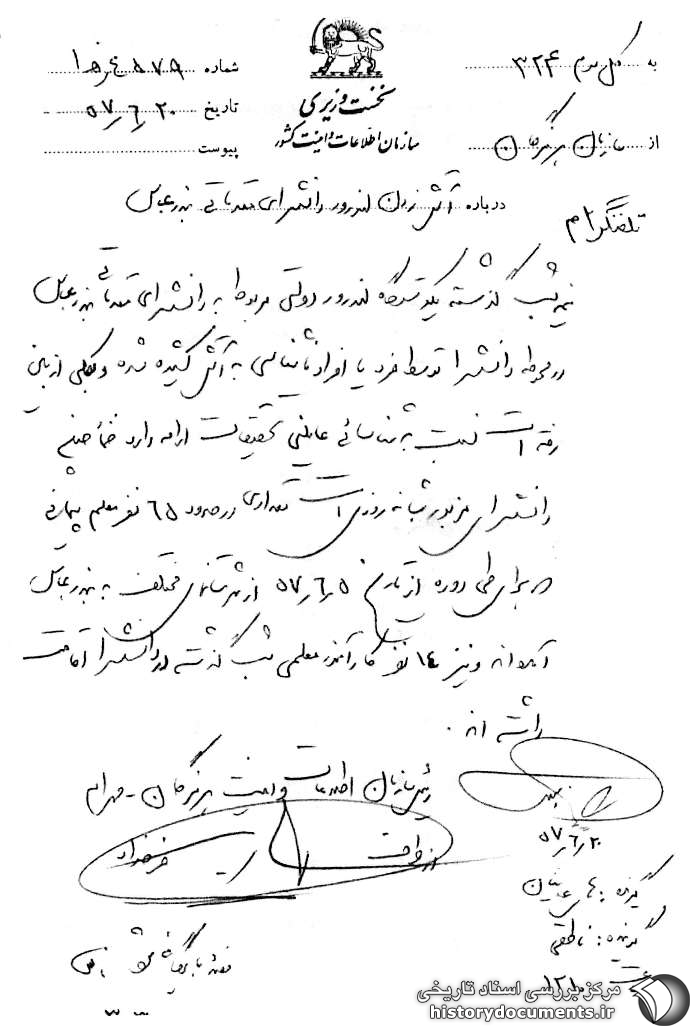 به کل سوم ۳۲۴
شماره ۱۵۴۵۷۹
از سازمان هرمزگان
تاریخ ۵۷٫۶٫۲۰
پیوست
نخست وزیری
سازمان اطلاعات و امنیت کشور
درباره آتش زدن لندرور دانشسرای مقدماتی بندرعباس
تلفنگرام
نیمه شب گذشته یکدستگاه لندرور دولتی مربوط به دانشسرای مقدماتی بندرعباس
در محوطه دانشسرا توسط فرد یا افراد ناشناسی به آتش کشیده شده و بکلی از بین
رفته است نسبت به شناسائی عاملین تحقیقات ادامه دارد ضمناً چون
دانشسرای مزبور شبانه روزی است تعدادی در حدود ۶۵ نفر معلم پیمانی
برای طی دوره از تاریخ ۵۷٫۶٫۵ از شهرستانهای مختلف به بندرعباس
آمده اند و نیز ۱۴ نفر کارآموز معلمی شب گذشته در دانشسرا اقامت
داشته اند.
رئیس سازمان اطلاعات و امنیت هرمزگان - مهرام
از طرف
۵۷٫۶٫۲۰
گوینده:
گیرنده: ناطقی
ساعت ۱۲۱۰
مرکز بررسی اسناد تاریخی
historydocuments.ir